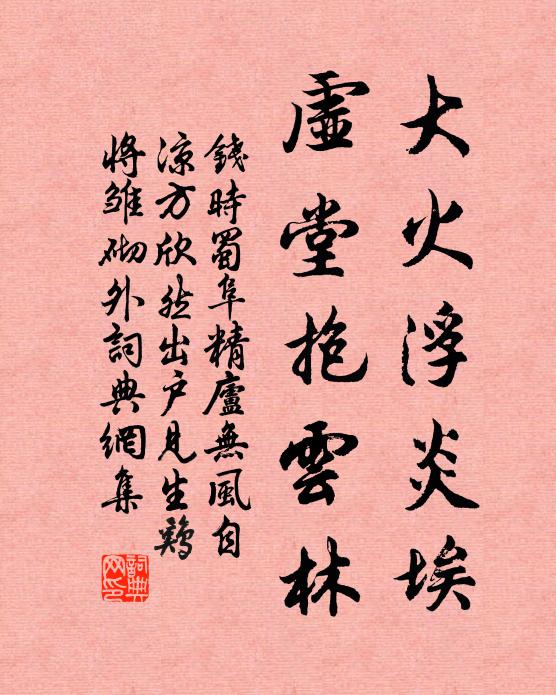 大火浮炎埃
虛堂抱雲林
錢時蜀阜精廬無風自
涼方欣然出戶見生鷄
將雛砌外詞典網集
詞典网印